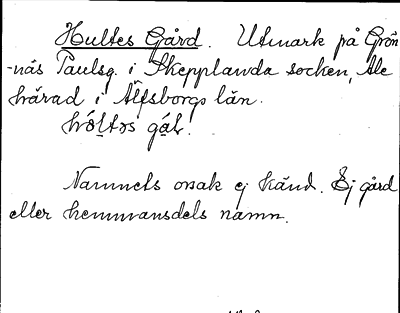 Hultes Gård. Utmark på Grön-
-näs Paulsg. i Skepplanda socken, Ale
härad i Älfsborgs län.

Namnets orsak ej känd. Ej gård
eller hemmansdels namn.